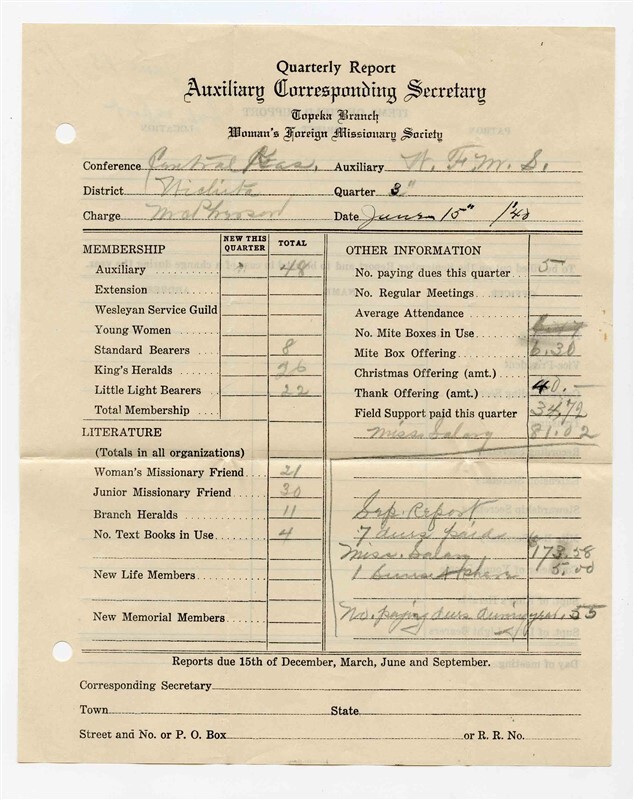 Quarterly Report
Auxiliary Corresponding Secretary
Topeka Branch
Woman's Foreign Missionary Society
Conference Central Kas. Auxiliary W. F. M. S.
District Wichita Quarter 3"
Charge McPherson Date June 15" /40
MEMBERSHIP NEW THIS QUARTER TOTAL
Auxiliary 48
Extension
Wesleyan Service Guild
Young Women
Standard Bearers 8
King's Heralds 26
Little Light Bearers 22
Total Membership
LITERATURE
(Totals in all organizations)
Woman's Missionary Friend 21
Junior Missionary Friend 30
Branch Heralds 11
No. Text Books in Use 4
New Life Members
New Memorial Members
OTHER INFORMATION
No. paying dues this quarter 5
No. Regular Meetings
Average Attendance
No. Mite Boxes in Use
Mite Box Offering 6.30
Christmas Offering (amt.)
Thank Offering (amt.) 40.—
Field Support paid this quarter 34,72
Miss Salary 81.02
Sep. Report
7 dues paid
Miss. Salary 173.58
1 5.00
No. paying dues during year. 55
Reports due 15th of December, March, June and September.
Corresponding Secretary
Town State
Street and No. or P. O. Box or R. R. No.